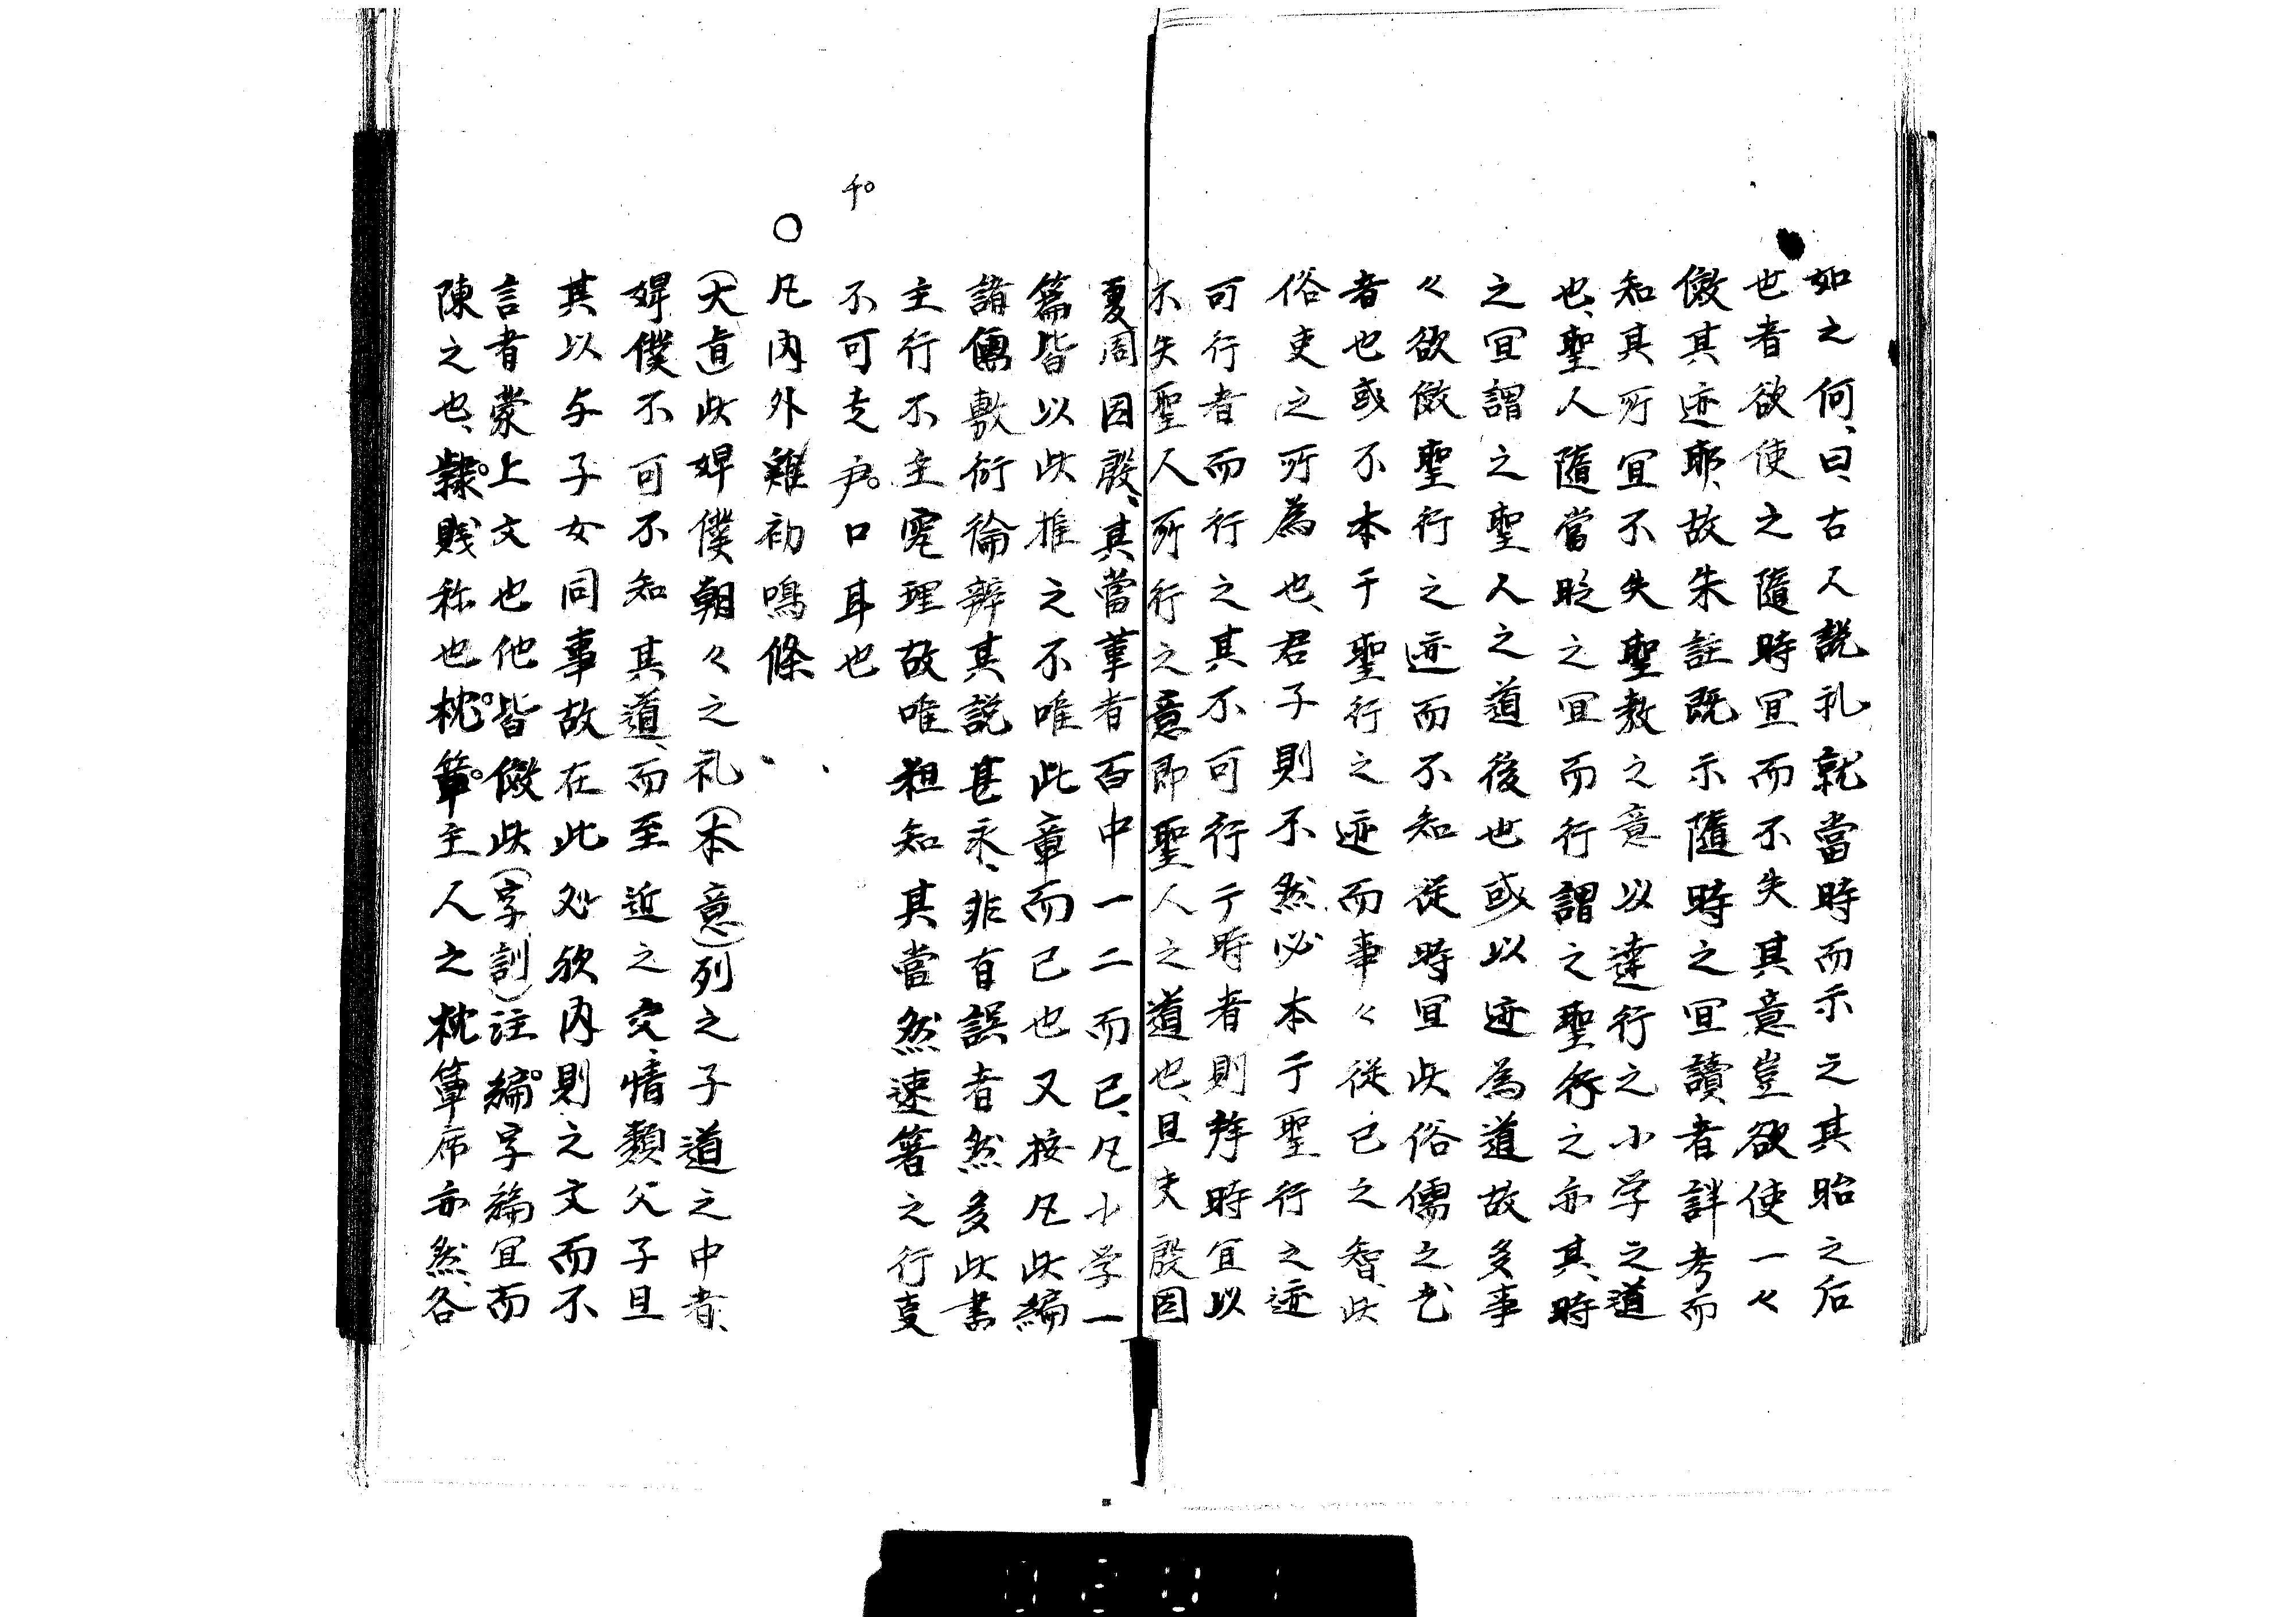 如之何、曰、古人説礼就當時而示之其貽之后
世者欲使之隨時宜而不失其意豈欲使一々
傚其迹耶、故朱註既示隨時之宜讀者詳考而
知其所宜不失聖教之意以達行之小学之道
也、聖人隨當時之宜而行謂之聖行之亦其時
之宜謂之聖人之道後世或以迹為道故多事
々欲傚聖行之迹而不知従時宜此俗儒之
者也或不本于聖行之迹而事々従己之智、此
俗吏之所為也、君子則不然必本于聖行之迹
可行者而行之其不可行于時者則時宜以
不失聖人所行之意即聖人之道也、且夫殷因
夏周因殷、其當革者百中一二而已、凡小学一
篇皆以此推之不唯此章而已也又按凡此編
諸儒敷衍論辨其説甚永、非有誤者然多此書
主行不主窮理故唯粗知其當然速著之行叓
不可走戸口耳也
十
○凡内外雞初鳴條
(大旨此婢僕朝々之礼(本意)列之子道之中者、
婢僕不可不知其道、而至近之交、情類父子且
其以与子女同事故在此処欤内則之文而不
言者蒙上文也他皆傚此(字訓)註編字編宜而
陳之也、隷賤称也枕簟主人之枕簟席亦然、各